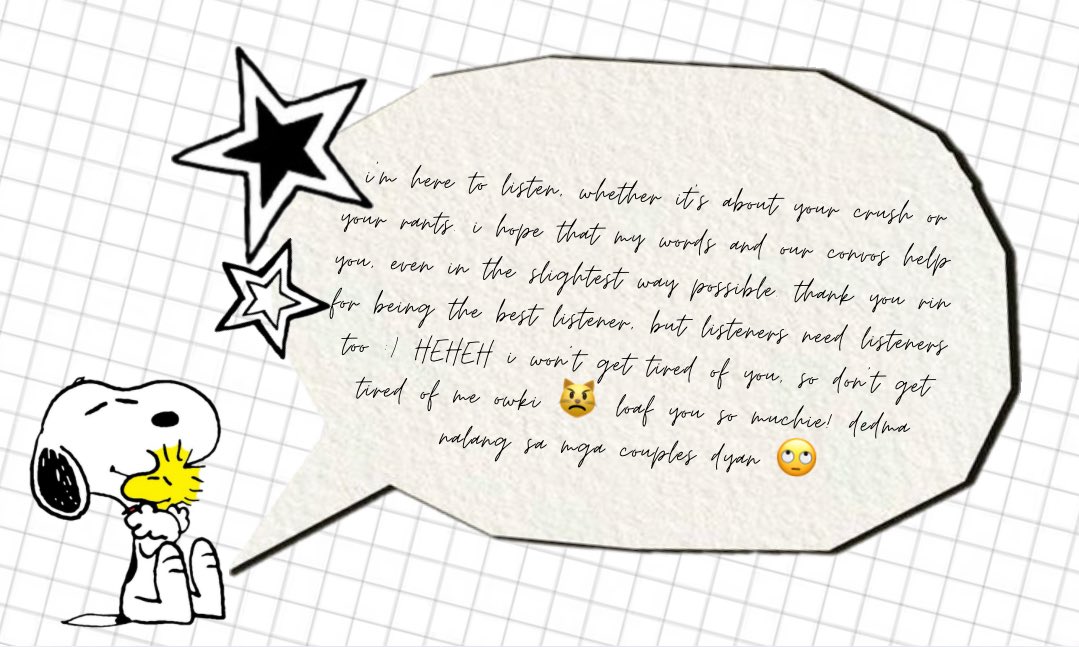 i'm here to listen. whether it's about your crush or
your rants. i hope that my words and our convos help
you. even in the slightest way possible. thank you rin
for being the best listener. but listeners need listeners
too :) HEHEH i won't get tired of you, so don't get
tired of me owki 😾 loaf you so muchie! dedma
nalang sa mga couples dyan 🙄